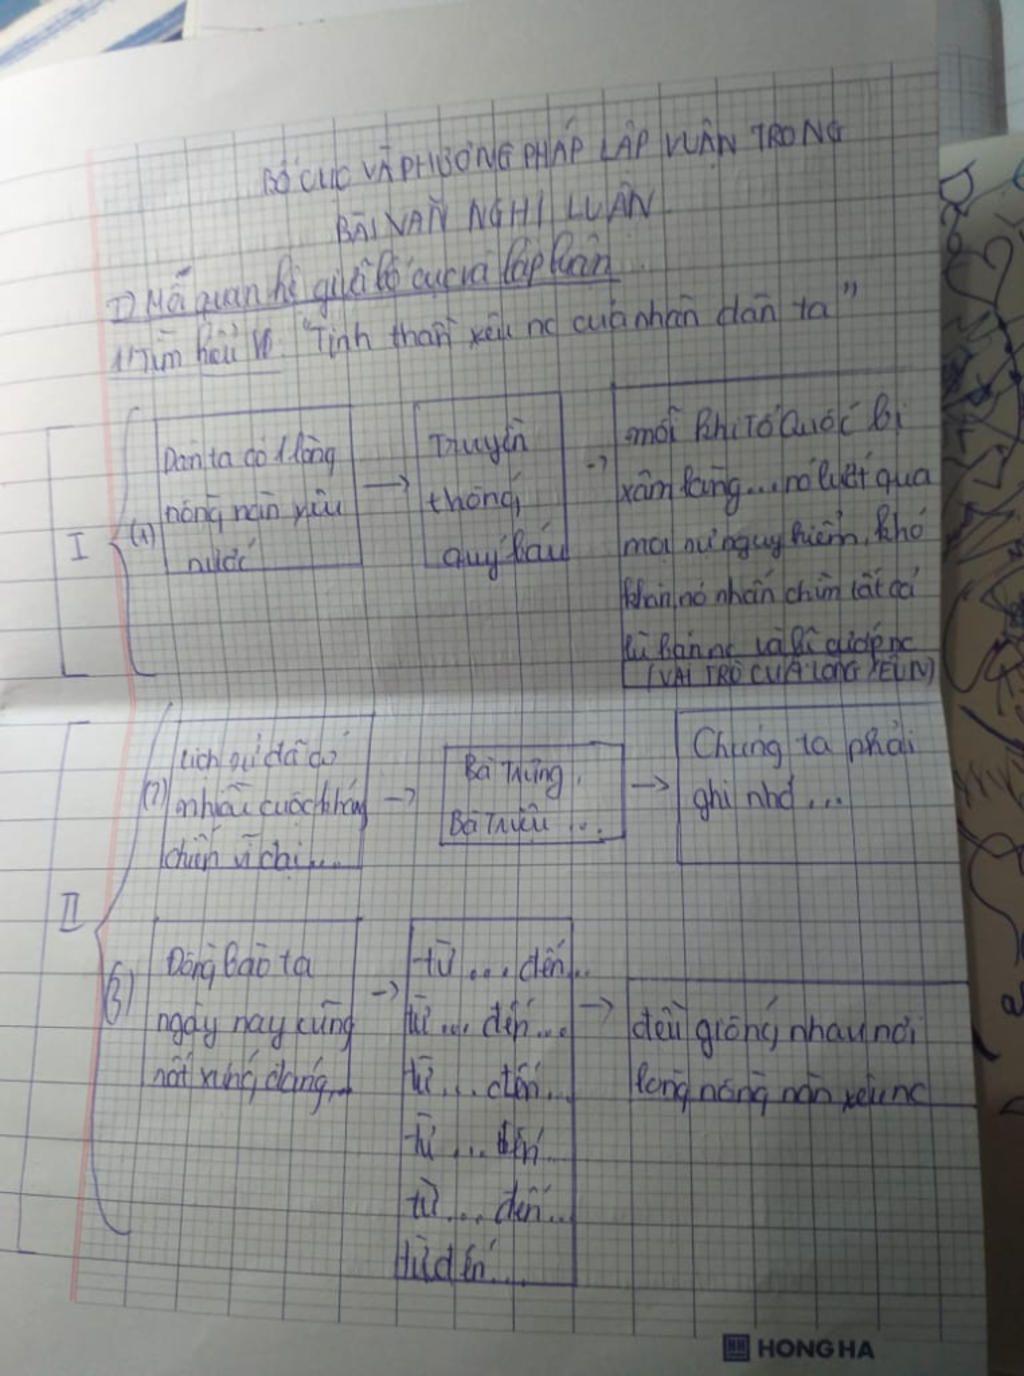 BỐ CỤC VÀ PHƯƠNG PHÁP LẬP LUẬN TRONG
BÀI VĂN NGHỊ LUẬN
I) Mối quan hệ giữa bố cục và lập luận
1) Tìm hiểu VB "Tinh thần yêu nc của nhân dân ta"
I
(1)
Dân ta có 1 lòng
nồng nàn yêu
nước
→
Truyền
thống
quý báu
→
mỗi khi tổ Quốc bị
xâm lăng... nó lướt qua
mọi sự nguy hiểm, khó
khăn, nó nhấn chìm tất cả
lũ bán nc và lũ cướp nc
(VAI TRÒ CỦA LÒNG YÊU N)
II
(2)
Lịch sử đã có
nhiều cuộc kháng
chiến vĩ đại...
→
Bà Trưng,
Bà Triệu ...
→
Chúng ta phải
ghi nhớ ...
(3)
Đồng bào ta
ngày nay cũng
rất xứng đáng...
→
từ ... đến...
từ ... đến...
từ ... đến...
từ ... đến...
từ ... đến...
từ đến...
→
đều giống nhau nơi
lòng nồng nàn yêu nc
HONG HA